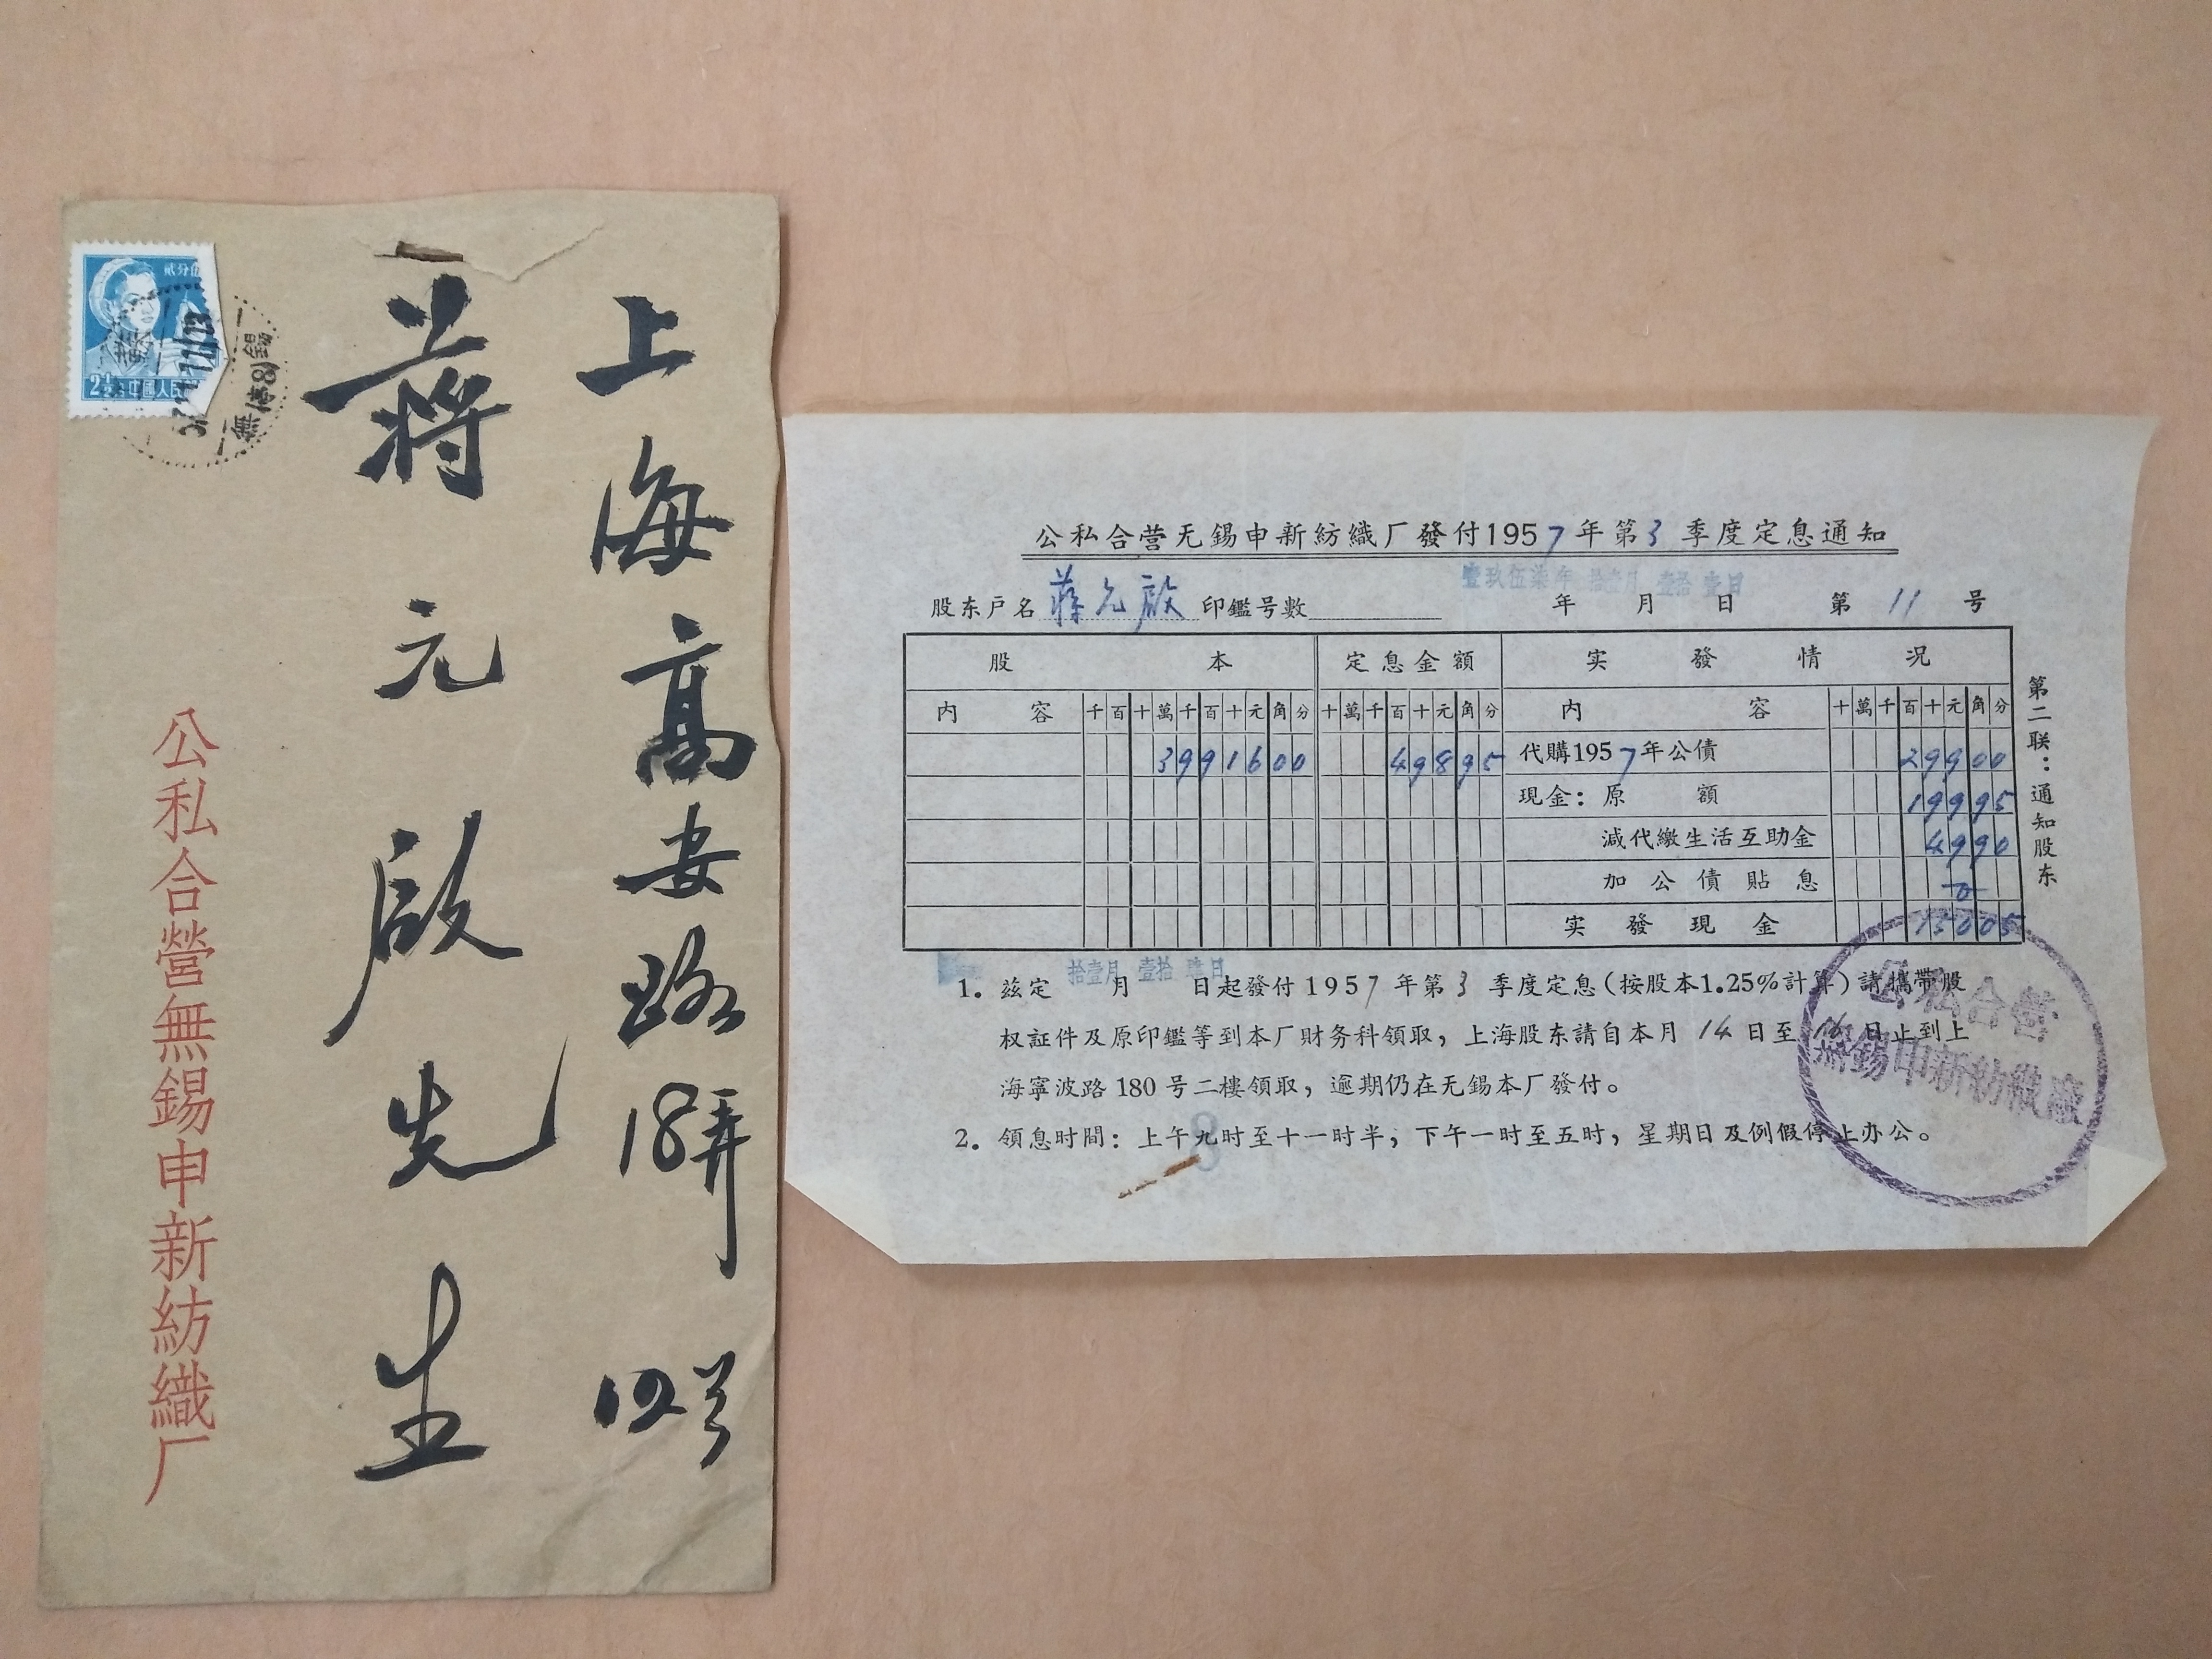 上海高安路18弄12号
蒋元啟先生
公私合營無錫申新紡織厂
2½分 中國人民
公私合营无錫申新紡織厂發付1957年第3季度定息通知
壹玖伍柒年 拾壹月 壹拾壹日
股东戶名 蒋元啟 印鑑号數 年 月 日 第 11 号
股本 定息金額 实發情况
内容 千百十萬千百十元角分 十萬千百十元角分 内容 十萬千百十元角分
3991600 49895 代購1957年公債 29900
現金：原額 19995
減代繳生活互助金 4990
加公債貼息 0
实發現金 15005
第二联：通知股东
拾壹月 壹拾 日
1. 兹定 月 日起發付1957年第3季度定息(按股本1.25%計算)請攜帶股
权証件及原印鑑等到本厂財务科領取，上海股东請自本月14日至16日止到上
海寧波路180号二樓領取，逾期仍在无錫本厂發付。
2. 領息时間：上午九时至十一时半，下午一时至五时，星期日及例假停止办公。
公私合营
無錫申新紡織廠